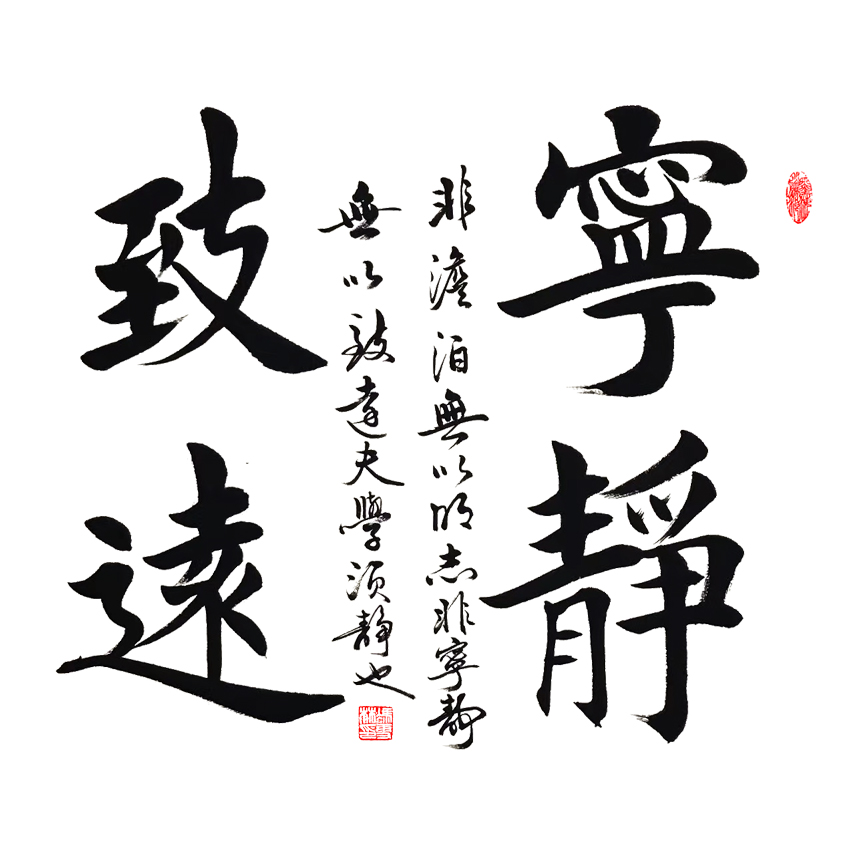 寧靜
致遠
非澹泊無以明志非寧靜
無以致遠夫學須靜也